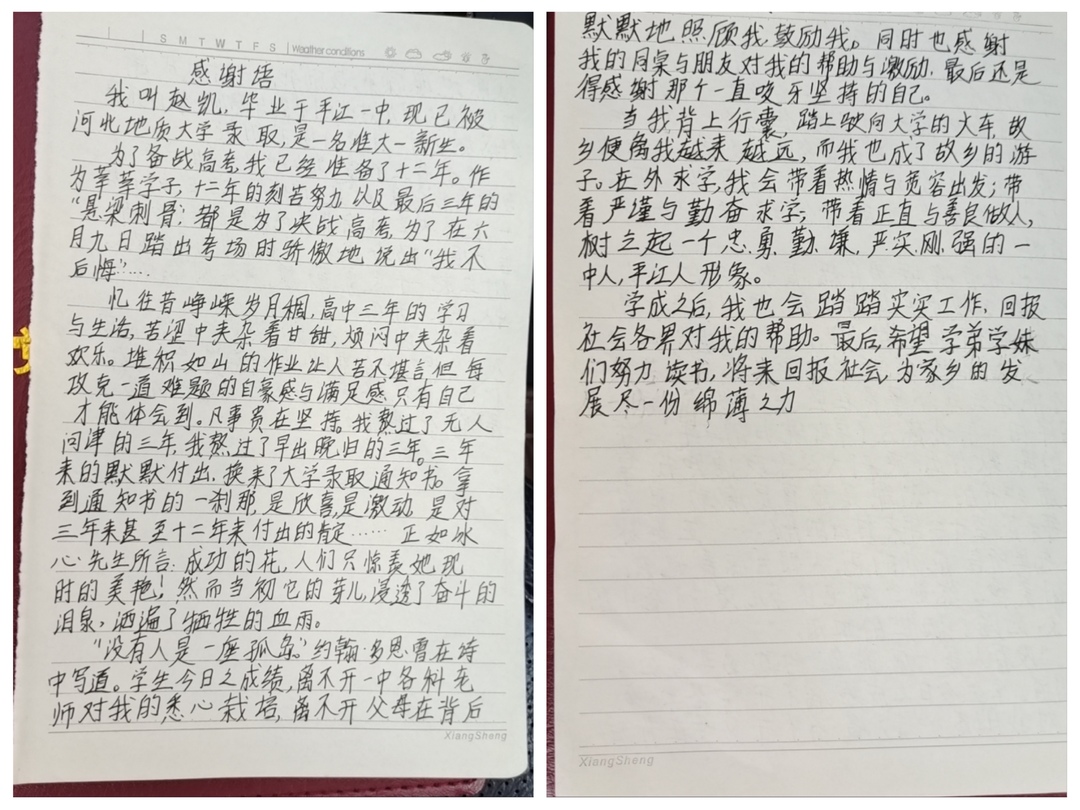 S M T W T F S Weather conditions
感谢语
我叫赵凯，毕业于平江一中，现已被
河北地质大学录取，是一名准大一新生。
为了备战高考，我已经准备了十二年。作
为莘莘学子，十二年的刻苦努力以及最后三年的
“悬梁刺骨”，都是为了决战高考，为了在六
月九日踏出考场时骄傲地说出“我不
后悔”....
忆往昔峥嵘岁月稠，高中三年的学习
与生活，苦涩中夹杂着甘甜，烦闷中夹杂着
欢乐。堆积如山的作业让人苦不堪言但每
攻克一道难题的自豪感与满足感只有自己
才能体会到。凡事贵在坚持。我熬过了无人
问津的三年，我熬过了早出晚归的三年。三年
来的默默付出，换来了大学录取通知书。拿
到通知书的一刹那，是欣喜，是激动，是对
三年来甚至十二年来付出的肯定……正如冰
心先生所言：成功的花，人们只惊羡她现
时的美艳！然而当初它的芽儿，浸透了奋斗的
泪泉，洒遍了牺牲的血雨。
“没有人是一座孤岛。”约翰·多恩曾在诗
中写道。学生今日之成绩，离不开一中各科老
师对我的悉心栽培，离不开父母在背后
XiangSheng
默默地照顾我，鼓励我。同时也感谢
我的同桌与朋友对我的帮助与激励，最后还是
得感谢那个一直咬牙坚持的自己。
当我背上行囊，踏上驶向大学的火车，故
乡便离我越来越远，而我也成了故乡的游
子。在外求学，我会带着热情与宽容出发；带
着严谨与勤奋求学；带着正直与善良做人，
树立起一个忠、勇、勤、廉、严实刚强的一
中人，平江人形象。
学成之后，我也会踏踏实实工作，回报
社会各界对我的帮助。最后，希望学弟学妹
们努力读书，将来回报社会，为家乡的发
展尽一份绵薄之力
XiangSheng